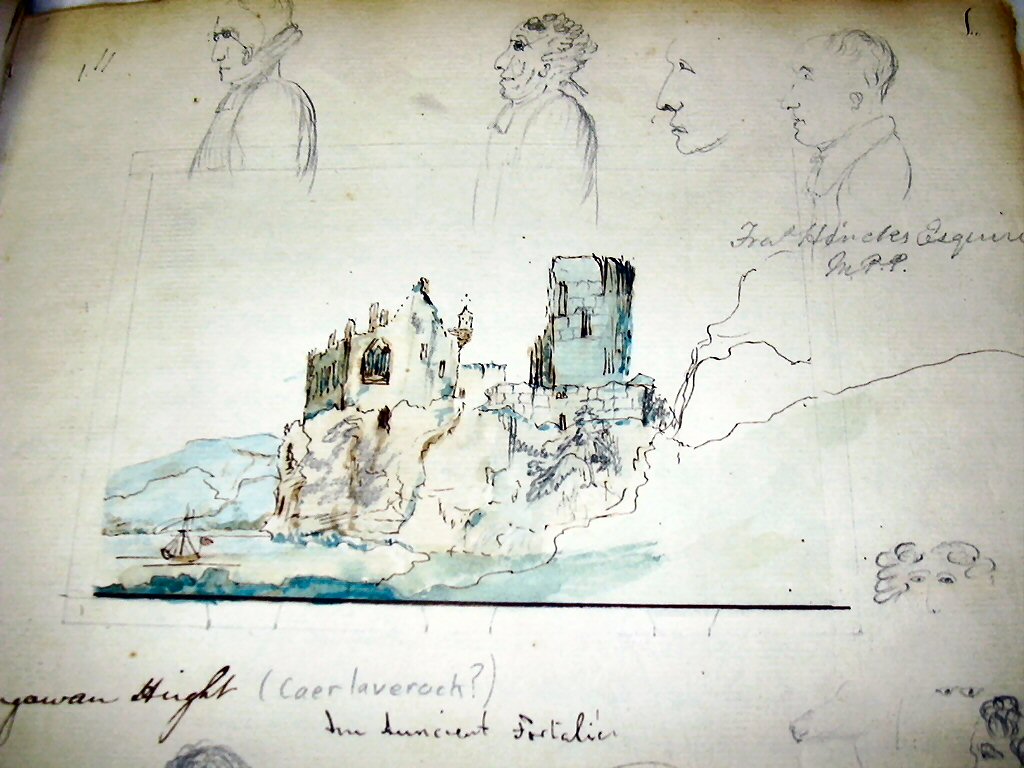 Fras Hincks Esquire
M.P.P.
Hight (Caerlaverock?)
An Auncient Fortalice